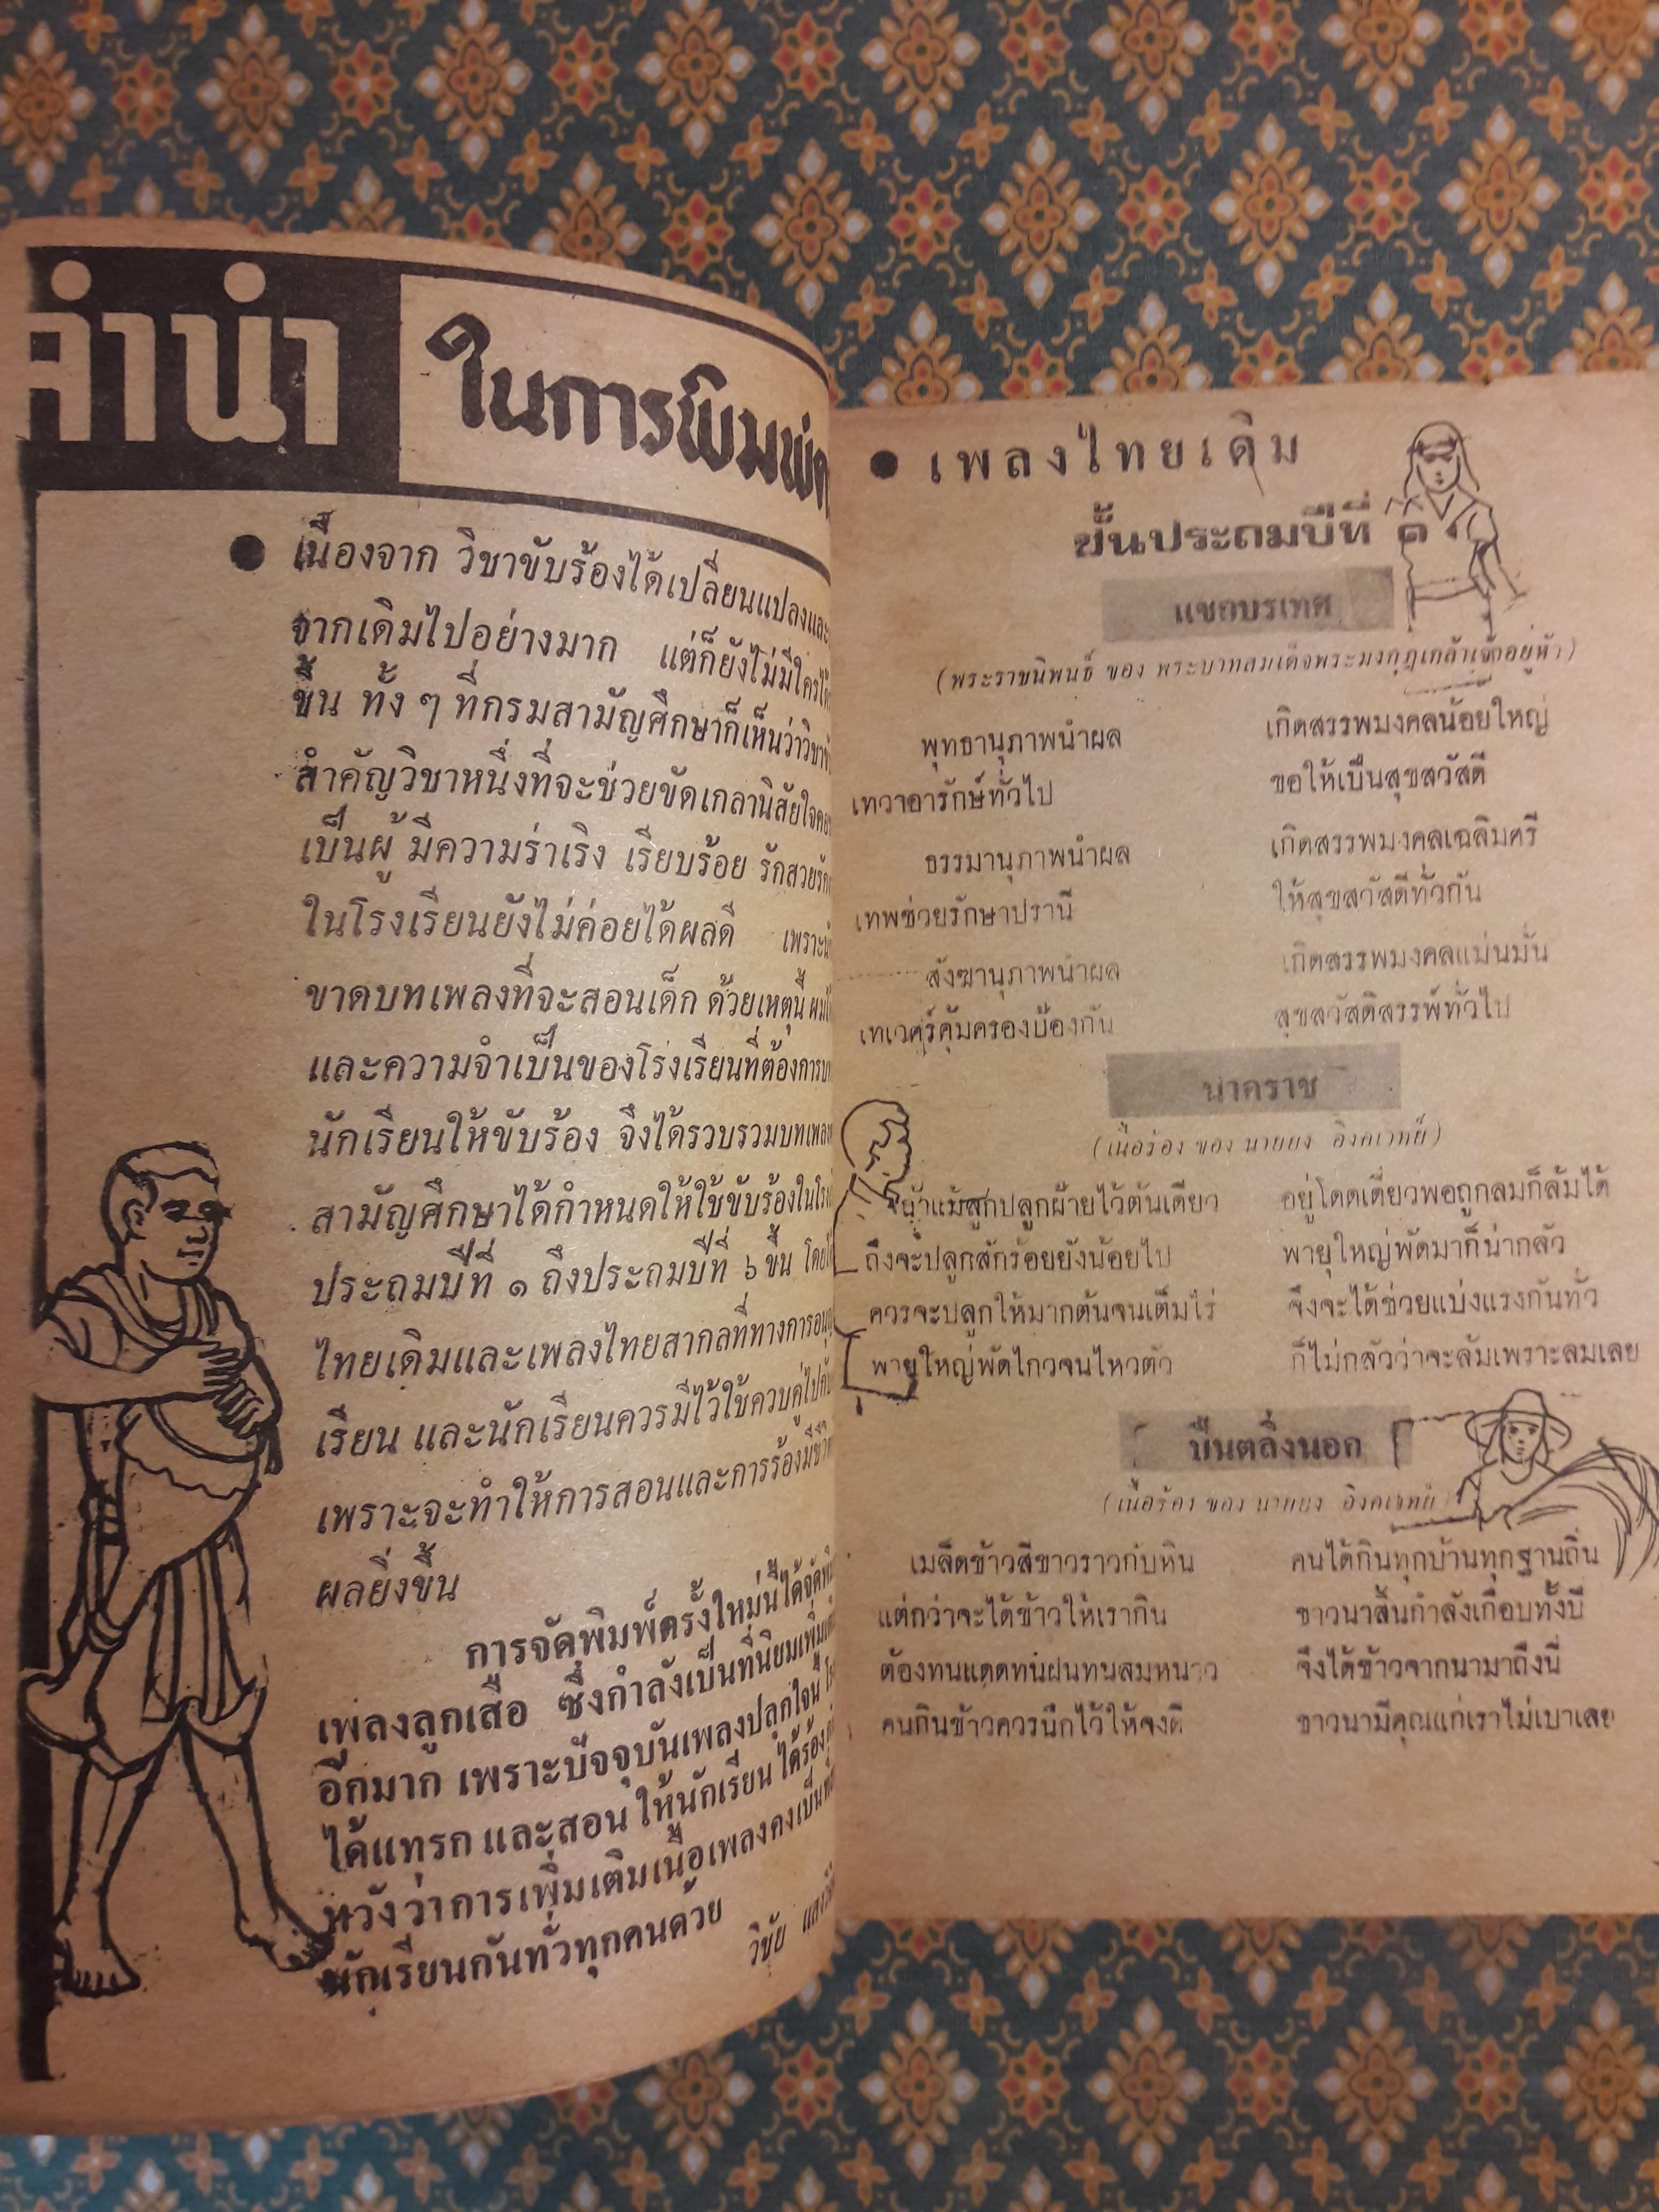 คำนำ ในการพิมพ์
● เนื่องจาก วิชาขับร้องได้เปลี่ยนแปลงและ
จากเดิมไปอย่างมาก แต่ก็ยังไม่มีใครได้
ขึ้น ทั้ง ๆ ที่กรมสามัญศึกษาก็เห็นว่าวิชา
สำคัญวิชาหนึ่งที่จะช่วยขัดเกลานิสัยใจคอ
เป็นผู้ มีความร่าเริง เรียบร้อย รักสวยรัก
ในโรงเรียนยังไม่ค่อยได้ผลดี เพราะ
ขาดบทเพลงที่จะสอนเด็ก ด้วยเหตุนี้ ผม
และความจำเป็นของโรงเรียนที่ต้องการ
นักเรียนให้ขับร้อง จึงได้รวบรวมบทเพลง
สามัญศึกษาได้กำหนดให้ใช้ขับร้องในโรง
ประถมปีที่ ๑ ถึงประถมปีที่ ๖ ขึ้น โดย
ไทยเดิมและเพลงไทยสากลที่ทางการ
เรียน และนักเรียนควรมีไว้ใช้ควบคู่ไป
เพราะจะทำให้การสอนและการร้องมีชีวิต
ผลยิ่งขึ้น
การจัดพิมพ์ครั้งใหม่นี้ได้จัด
เพลงลูกเสือ ซึ่งกำลังเป็นที่นิยมเพิ่ม
อีกมาก เพราะปัจจุบันเพลงปลุกใจนี้
ได้แทรก และสอน ให้นักเรียน ได้ร้อง
หวังว่าการเพิ่มเติมเนื้อเพลงคงเป็นที่
นักเรียนกันทั่วทุกคนด้วย
วิชัย
● เพลงไทยเดิม
ชั้นประถมปีที่ ๑
แขกบรเทศ
(พระราชนิพนธ์ ของ พระบาทสมเด็จพระมงกุฎเกล้าเจ้าอยู่หัว)
พุทธานุภาพนำผล เกิดสรรพมงคลน้อยใหญ่
เทวาอารักษ์ทั่วไป ขอให้เป็นสุขสวัสดี
ธรรมานุภาพนำผล เกิดสรรพมงคลเฉลิมศรี
เทพช่วยรักษาปรานี ให้สุขสวัสดีทั่วกัน
สังฆานุภาพนำผล เกิดสรรพมงคลแม่นมั่น
เทเวศร์คุ้มครองป้องกัน สุขสวัสดิสรรพ์ทั่วไป
นาคราช
(เนื้อร้อง ของ นายยง อิงคเวทย์)
น้าแม้ลูกปลูกฝ้ายไว้ต้นเดียว อยู่โดดเดี่ยวพอถูกลมก็ล้มได้
ถึงจะปลูกสักร้อยยังน้อยไป พายุใหญ่พัดมาก็น่ากลัว
ควรจะปลูกให้มากต้นจนเต็มไร่ จึงจะได้ช่วยแบ่งแรงกันทั่ว
พายุใหญ่พัดไกวจนไหวตัว ก็ไม่กลัวว่าจะล้มเพราะลมเลย
ปีนตลิ่งนอก
(เนื้อร้อง ของ นายยง อิงคเวทย์)
เมล็ดข้าวสีขาวราวกับหิน คนได้กินทุกบ้านทุกฐานถิ่น
แต่กว่าจะได้ข้าวให้เรากิน ชาวนาสิ้นกำลังเกือบทั้งปี
ต้องทนแดดทนฝนทนลมหนาว จึงได้ข้าวจากนามาถึงนี่
คนกินข้าวควรนึกไว้ให้จงดี ชาวนามีคุณแก่เราไม่เบาเลย